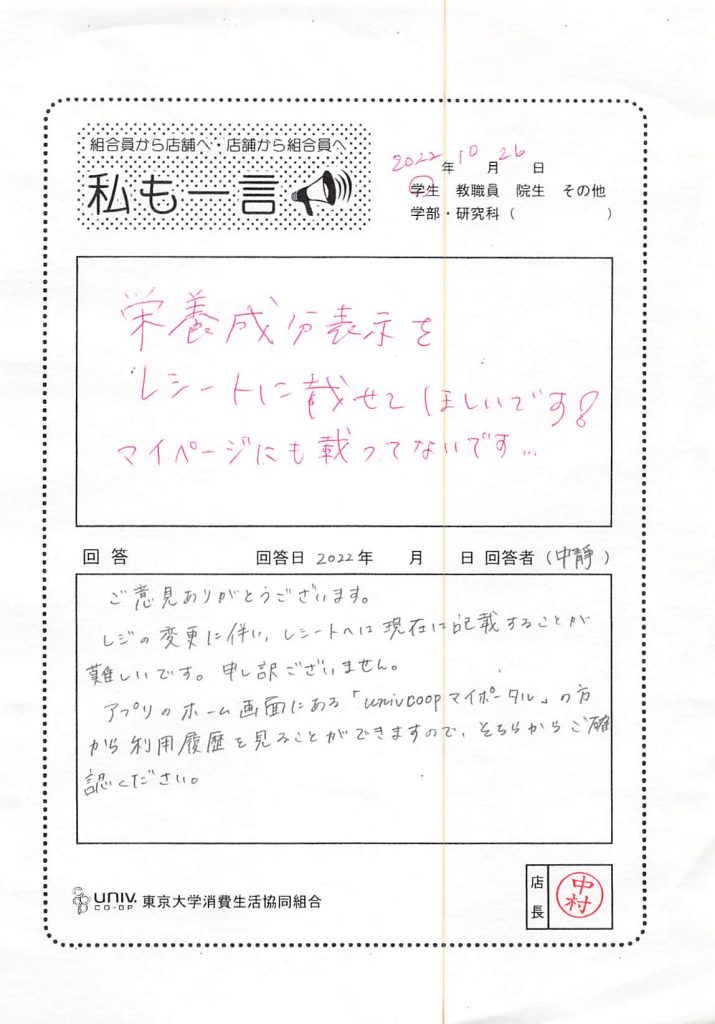 組合員から店舗へ・店舗から組合員へ
私も一言
2022年10月26日
学生 教職員 院生 その他
学部・研究科( )
栄養成分表示を
レシートに載せてほしいです!
マイページにも載ってないです…
回答 回答日 2022年 月 日 回答者(中靜)
ご意見ありがとうございます。
レジの変更に伴い、レシートへは現在は記載することが
難しいです。申し訳ございません。
アプリのホーム画面にある「univcoopマイポータル」の方
から利用履歴を見ることができますので、そちらからご確
認ください。
UNIV. CO-OP 東京大学消費生活協同組合
店長 中村